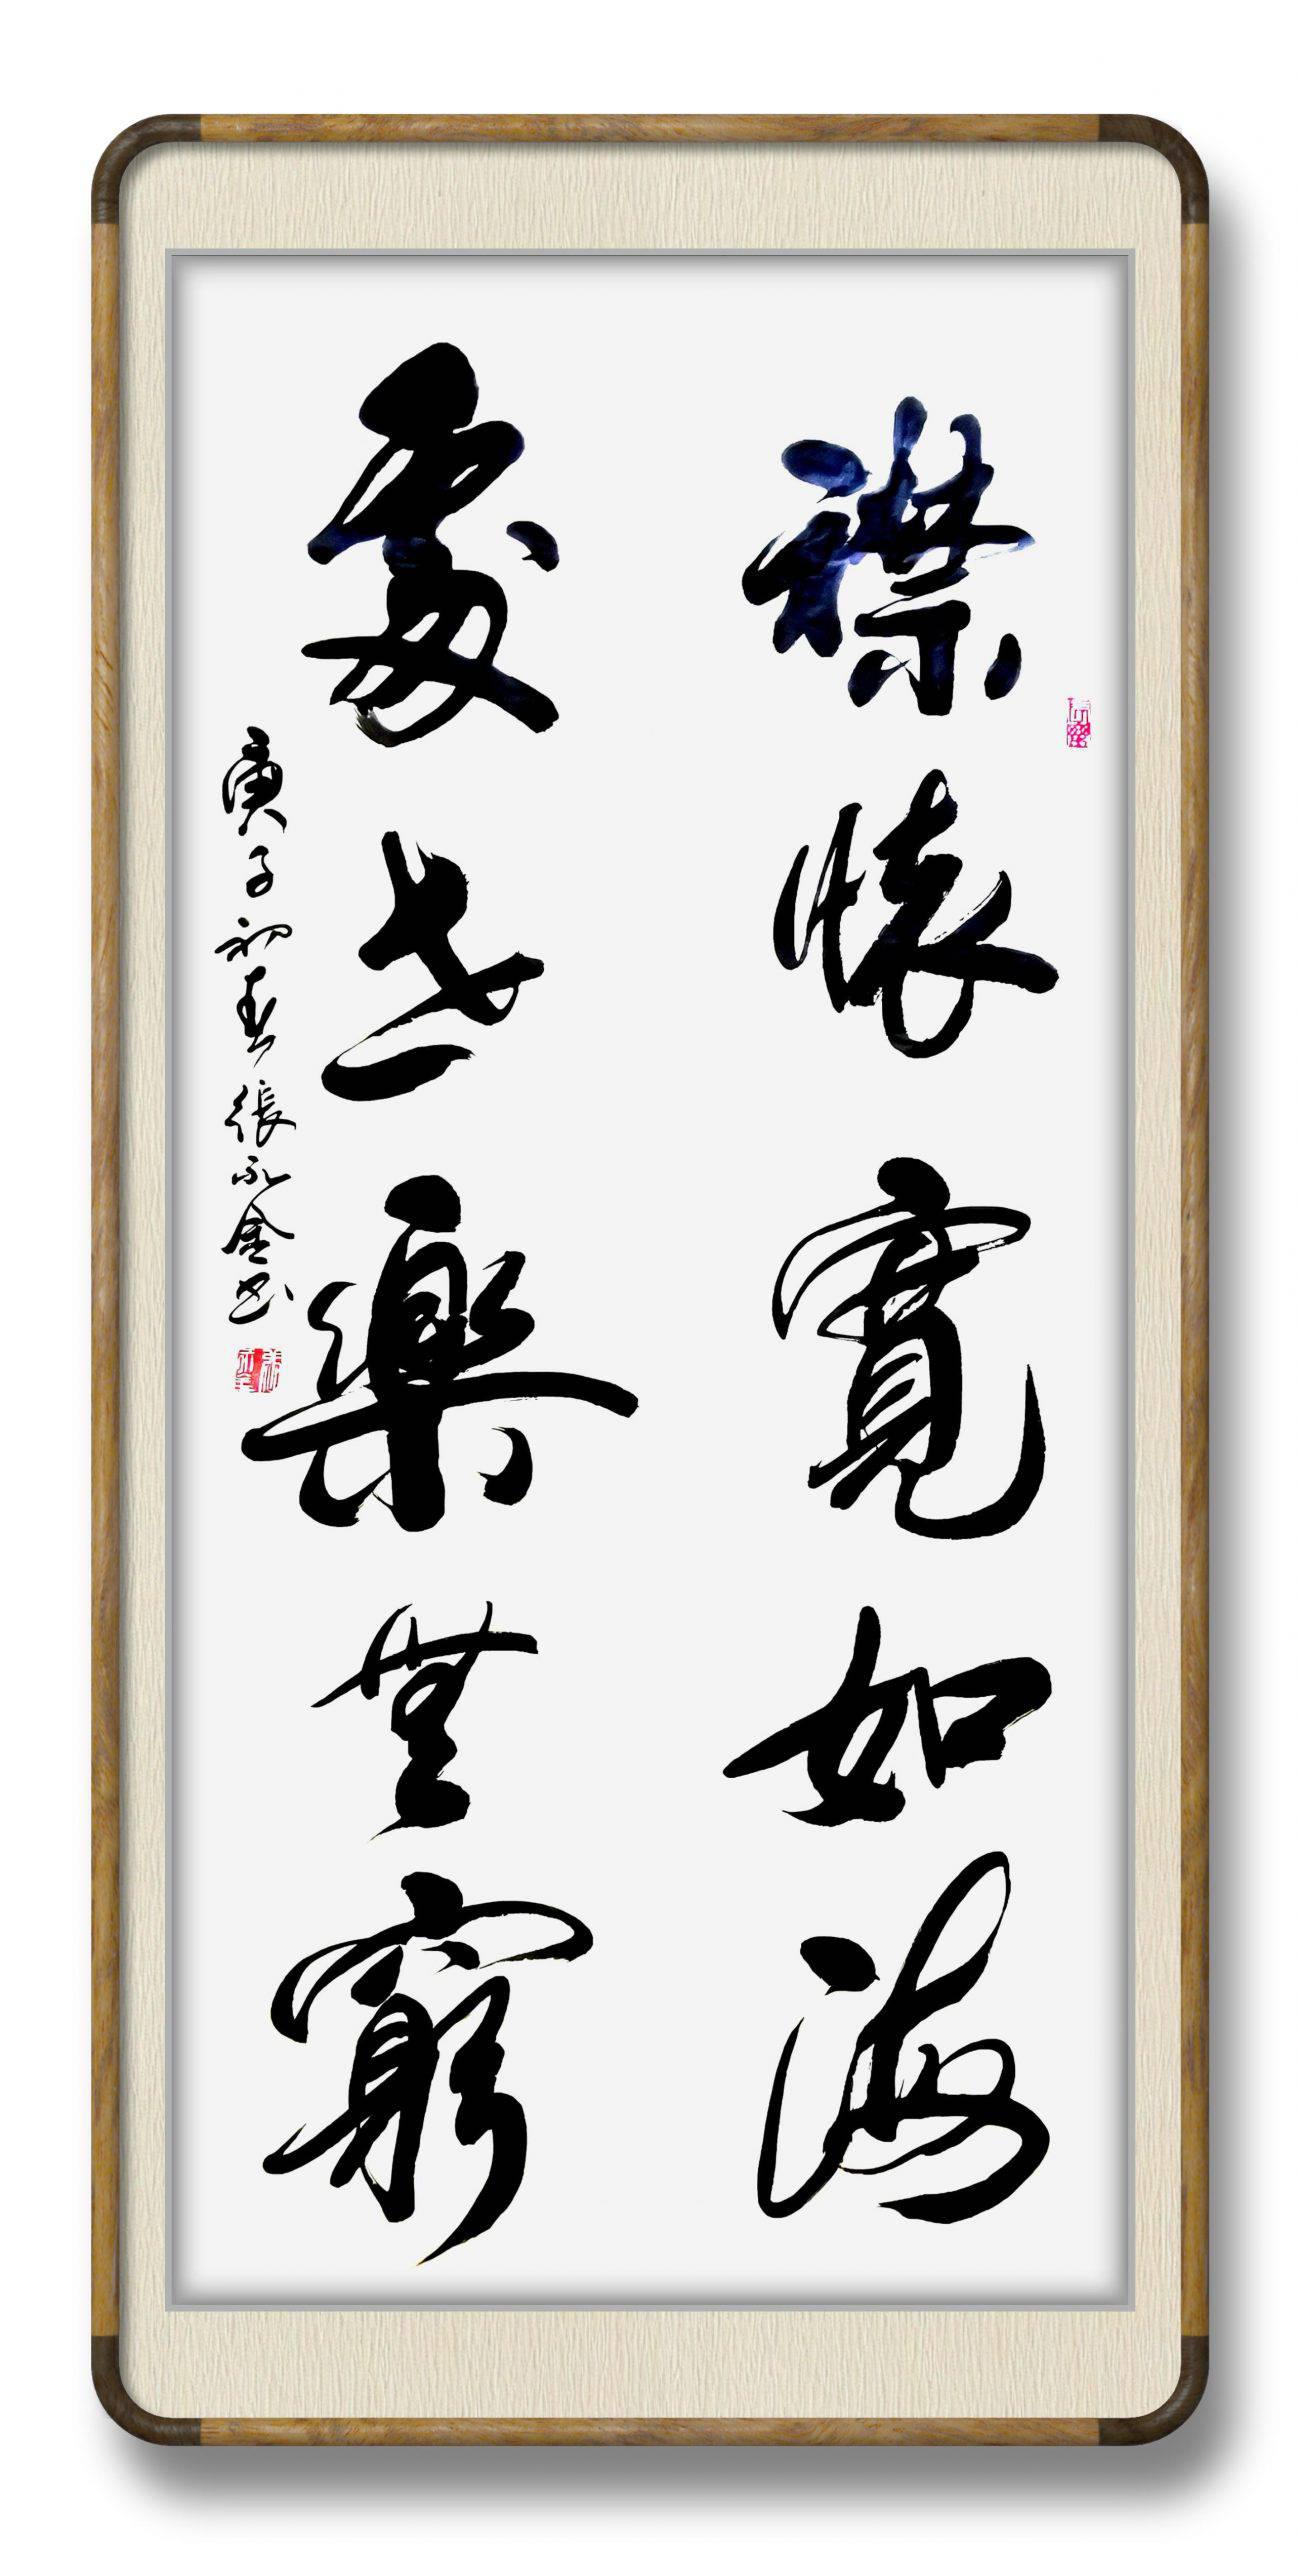 襟懷寬如海
處世樂無窮
庚子初春張永金书